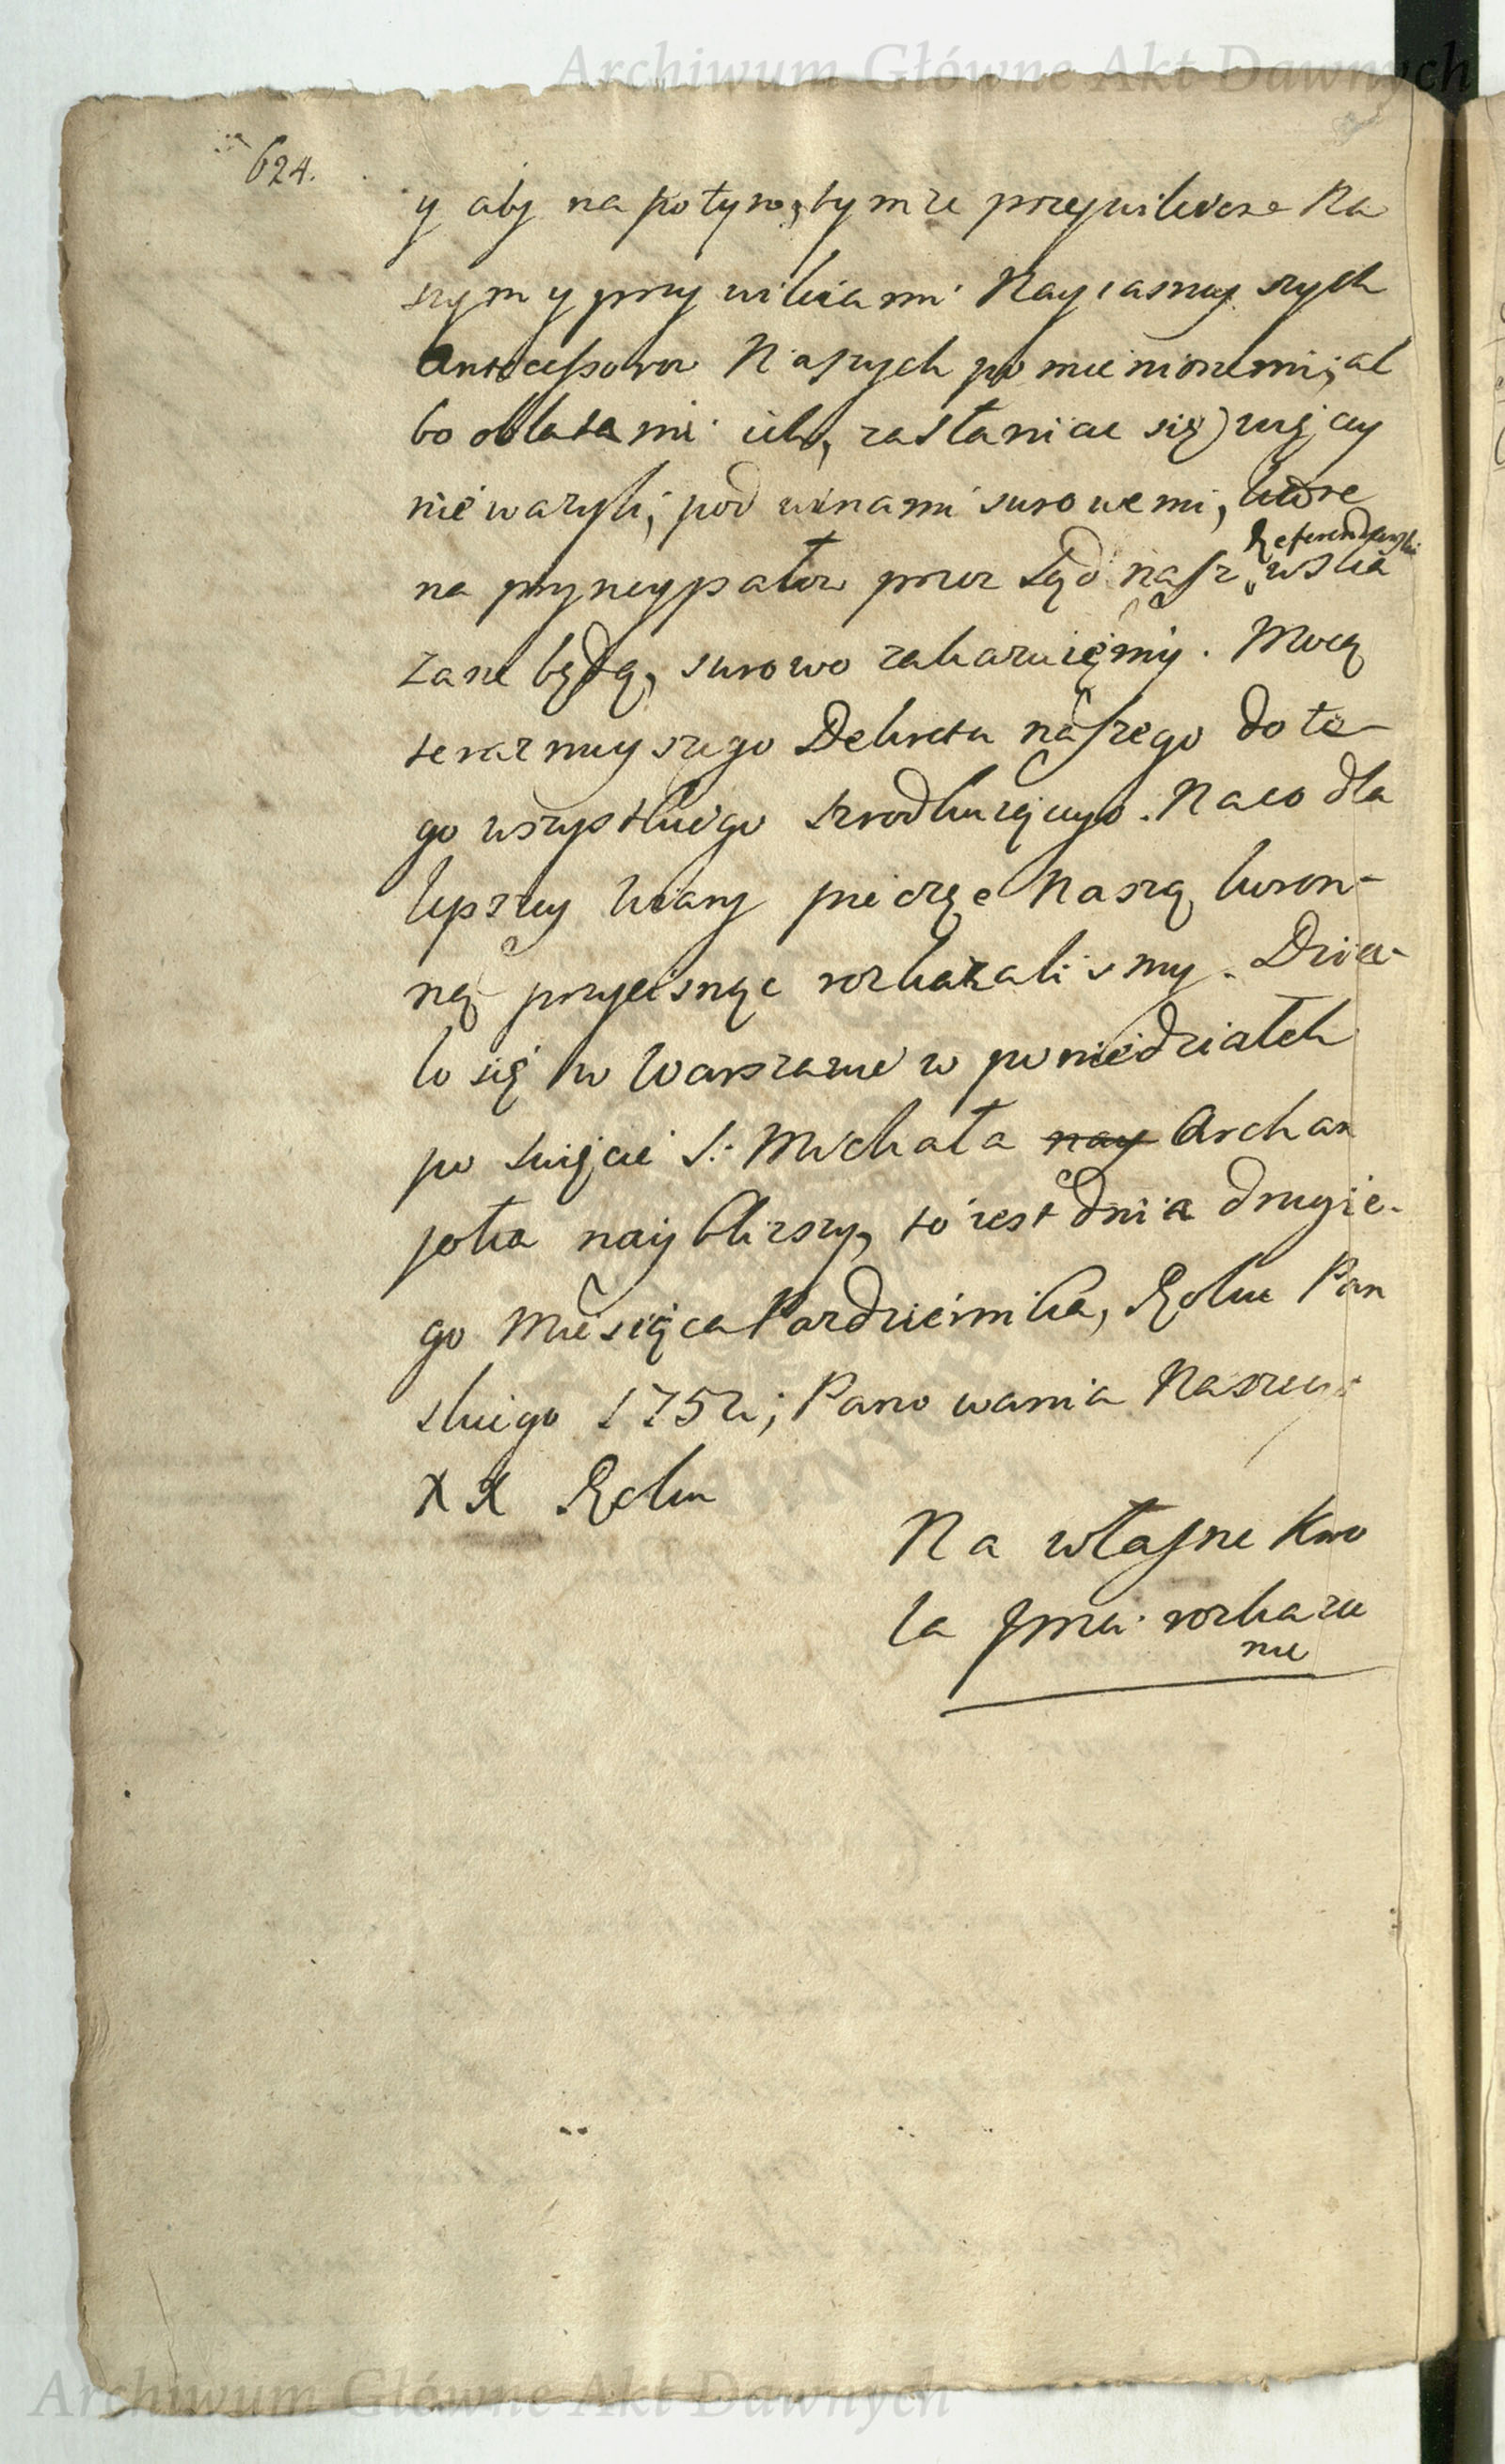 Archiwum Główne Akt Dawnych
624.
y aby na potym, tymże przywileiem Na
szym y przywileiami Nayiasnieyszych
Antecessorow Naszych pomienionemi, al
bo oblatami ich, zasłaniac się więcey
nie wazyli, pod winami surowemi, ktore
Referendarski
na pryncypałow przez Sąd nasz wska
zane będą, surowo zakazuięmy. Mocą
teraznieyszego Dekretu naszego do te-
go wszystkiego szrodkuiącego. Na co dla
lepszey wiary pieczęc Naszą koron-
ną przycisnąc rozkazalismy. Dzia-
ło się w Warszawie w poniedziałek
po swięcie S: Michała nay Archan
joła nayblizszy, to iest dnia drugie-
go Miesiąca Pazdziernika, Roku Pan
skiego 1752; Panowania Naszego
XX Roku
Na własne Kro
la Jmci rozkaza
nie
Archiwum Główne Akt Dawnych